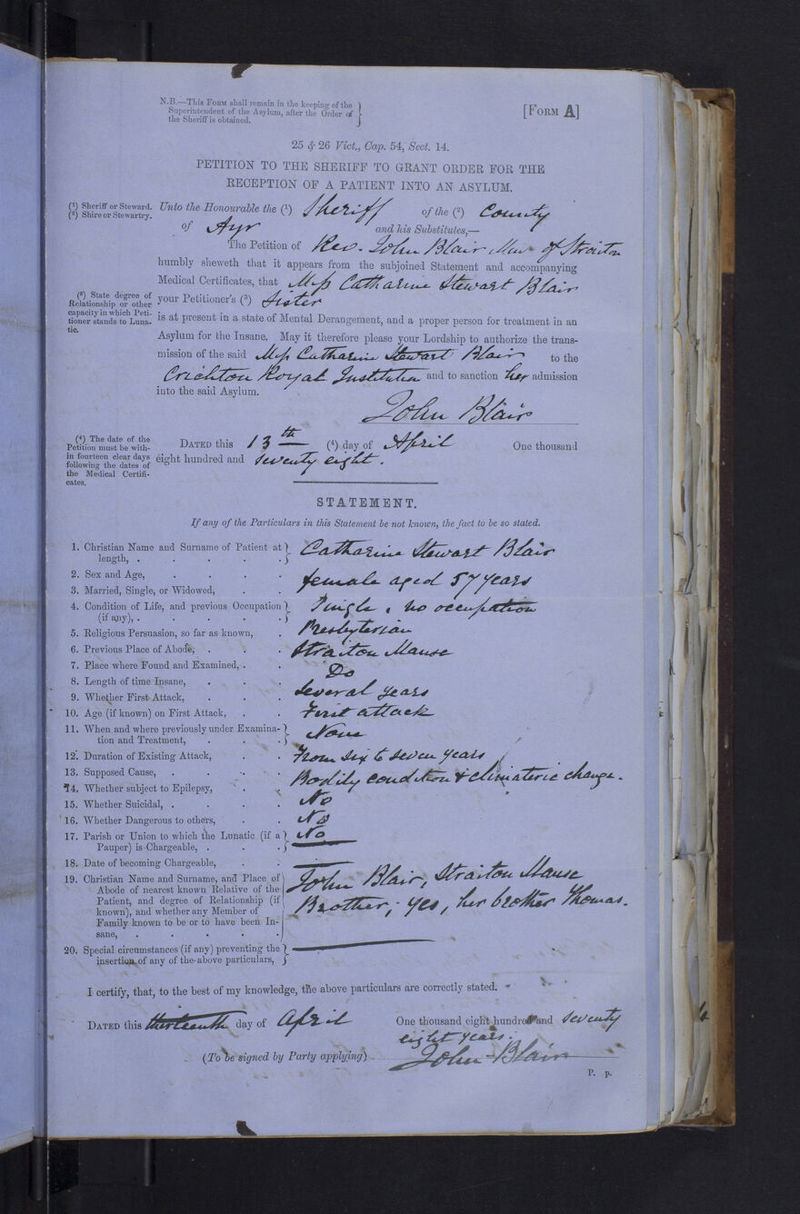 N.B.—This Form shall remain in the keeping of the
Superintendent of the Asylum, after the Order of
the Sheriff is obtained.
[Form A]
25 & 26 Vict., Cap. 54, Sect. 14.
PETITION TO THE SHERIFF TO GRANT ORDER FOR THE
RECEPTION OF A PATIENT INTO AN ASYLUM.
(¹) Sheriff or Steward.
(²) Shire or Stewartry.
Unto the Honourable the (¹) Sheriff of the (²) County
of Ayr and his Substitutes,—
The Petition of Rev. John Blair Minr of Straiton
humbly sheweth that it appears from the subjoined Statement and accompanying
Medical Certificates, that Miss Catharine Stewart Blair
(³) State degree of
Relationship or other
capacity in which Peti-
tioner stands to Luna-
tic.
your Petitioner's (³) Sister
is at present in a state of Mental Derangement, and a proper person for treatment in an
Asylum for the Insane. May it therefore please your Lordship to authorize the trans-
mission of the said Miss Catharine Stewart Blair to the
Crichton Royal Institution and to sanction her admission
into the said Asylum.
John Blair
(⁴) The date of the
Petition must be with-
in fourteen clear days
following the dates of
the Medical Certifi-
cates.
Dated this 13th (⁴) day of April One thousand
eight hundred and seventy eight.
STATEMENT.
If any of the Particulars in this Statement be not known, the fact to be so stated.
1. Christian Name and Surname of Patient at
length, . Catharine Stewart Blair
2. Sex and Age, female aged 57 years
3. Married, Single, or Widowed,
4. Condition of Life, and previous Occupation
(if any), . Single, no occupation
5. Religious Persuasion, so far as known, Presbyterian
6. Previous Place of Abode, Straiton Manse
7. Place where Found and Examined, Do
8. Length of time Insane, Several years
9. Whether First Attack,
10. Age (if known) on First Attack, First attack
11. When and where previously under Examina-
tion and Treatment, None
12. Duration of Existing Attack, From six to seven years
13. Supposed Cause, Bodily condition & climateric change.
14. Whether subject to Epilepsy,
15. Whether Suicidal, No
16. Whether Dangerous to others, No
17. Parish or Union to which the Lunatic (if a
Pauper) is Chargeable, No
18. Date of becoming Chargeable,
19. Christian Name and Surname, and Place of
Abode of nearest known Relative of the
Patient, and degree of Relationship (if
known), and whether any Member of
Family known to be or to have been In-
sane,
John Blair, Straiton Manse
Brother; yes, her brother Thomas.
20. Special circumstances (if any) preventing the
insertion of any of the above particulars,
I certify, that, to the best of my knowledge, the above particulars are correctly stated.
Dated this thirteenth day of April One thousand eight hundred and seventy
eight years.
(To be signed by Party applying) John Blair
P. p.